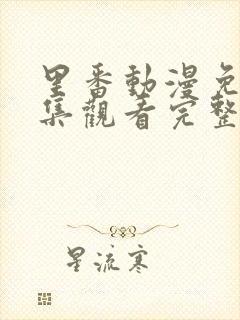 里番動漫免
集觀看完整
星流寒